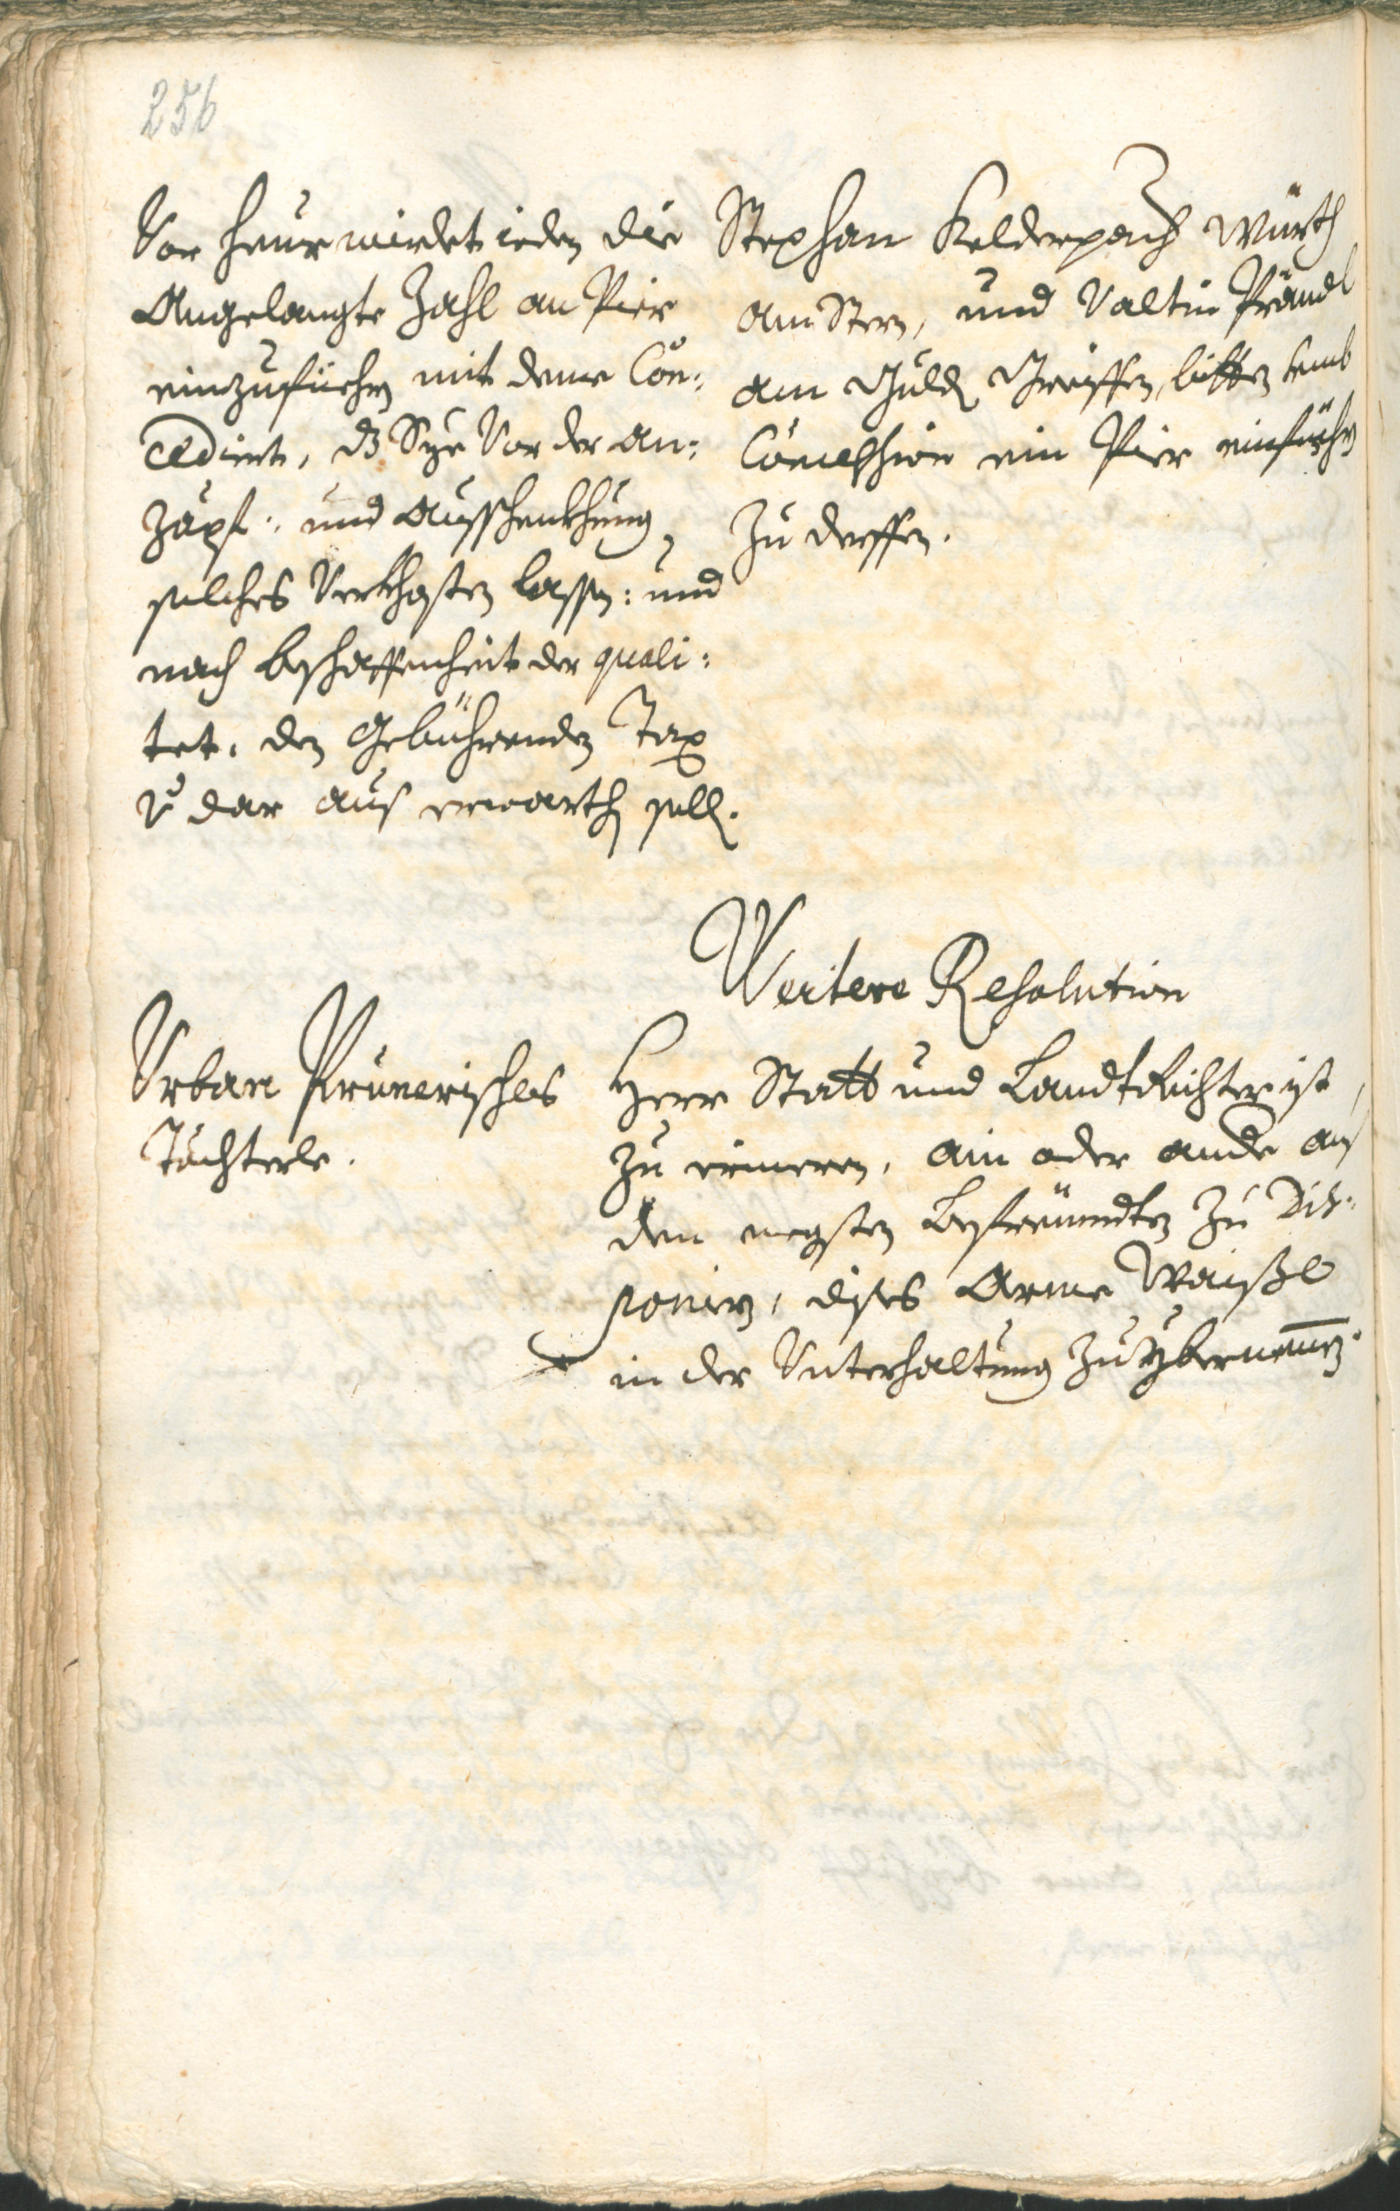 256
Vor heur wirdet ieden die
Angelangte Zahl an Pier
einzufüehrn mit deme Con:
cedirt, dz Sye Vor der an:
zäpf: und Ausschenkhung
solches Verkhosten lassen: und
nach beschaffenheit der quali:
tet, den Gebührenden Tax
dar aus erwarthen sollen.
Stephan Kelderpach Würth
am Stern, und Valtin Prändl
am Gulden Greiffen, bitten umb
Concession ein Pier einführn
zu derffen.
Weitere Resolution
Urban Prunerisches
Töchterle.
Herr Statt und Landtrichter ist
zu erineren, ain oder andere aus
den negsten Befreündten zu dis:
poniern, dises Arme Waißl
in der Unterhaltung zu ybernemen.